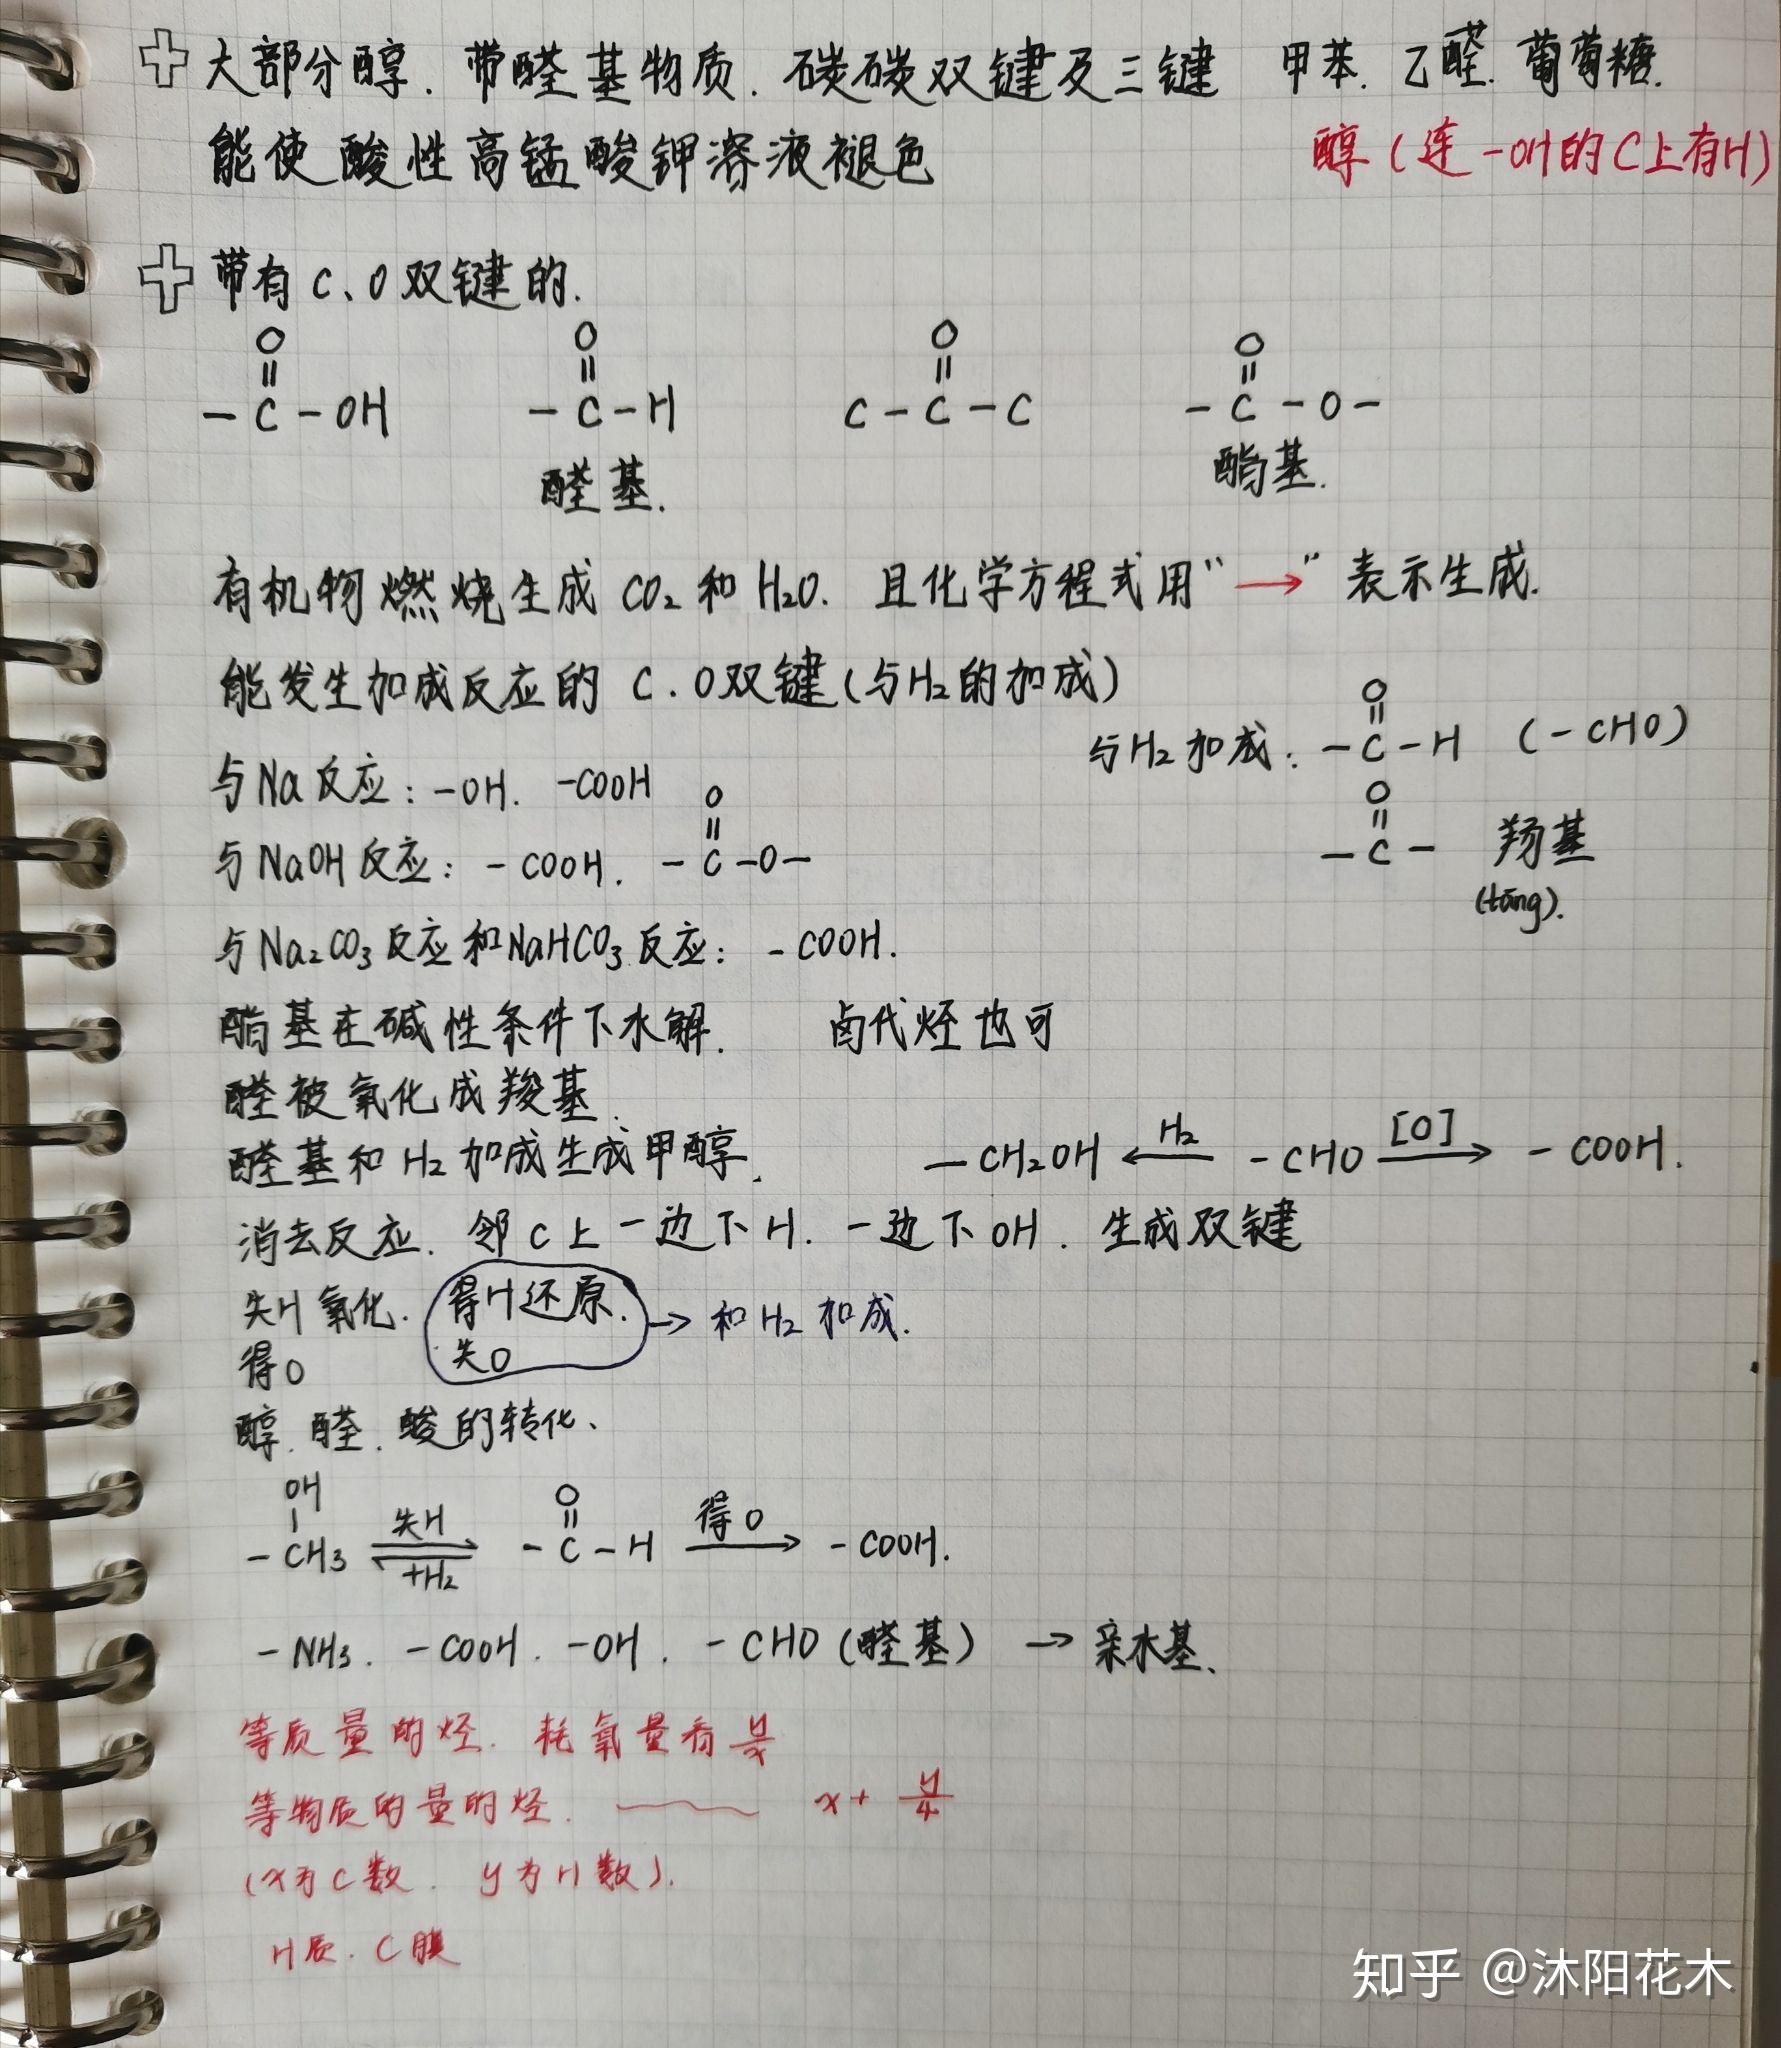 大部分醇. 带醛基物质. 碳碳双键及三键 甲苯. 乙醛. 葡萄糖.
能使酸性高锰酸钾溶液褪色 醇(连-OH的C上有H)
带有C、O双键的.
O O O O
|| || || ||
-C-OH -C-H C-C-C -C-O-
醛基. 酯基.
有机物燃烧生成CO₂和H₂O. 且化学方程式用"→"表示生成.
能发生加成反应的C.O双键(与H₂的加成)
O
||
与H₂加成: -C-H (-CHO)
O
||
-C- 羰基
(tāng).
与Na反应: -OH. -COOH
O
||
与NaOH反应: -COOH. -C-O-
与Na₂CO₃反应和NaHCO₃反应: -COOH.
酯基在碱性条件下水解. 卤代烃也可
醛被氧化成羧基.
醛基和H₂加成生成甲醇. -CH₂OH ←H₂ -CHO [O]→ -COOH.
消去反应. 邻C上一边下H. 一边下OH. 生成双键
失H氧化. 得H还原. → 和H₂加成.
得O 失O
醇.醛.酸的转化、
OH O
| ||
-CH3 失H ⇌ +H₂ -C-H 得O→ -COOH.
-NH₃. -COOH. -OH. -CHO(醛基) → 亲水基、
等质量的烃. 耗氧量看y/x
等物质的量的烃. x+y/4
(x为C数. y为H数).
H质. C膜
知乎 @沐阳花木